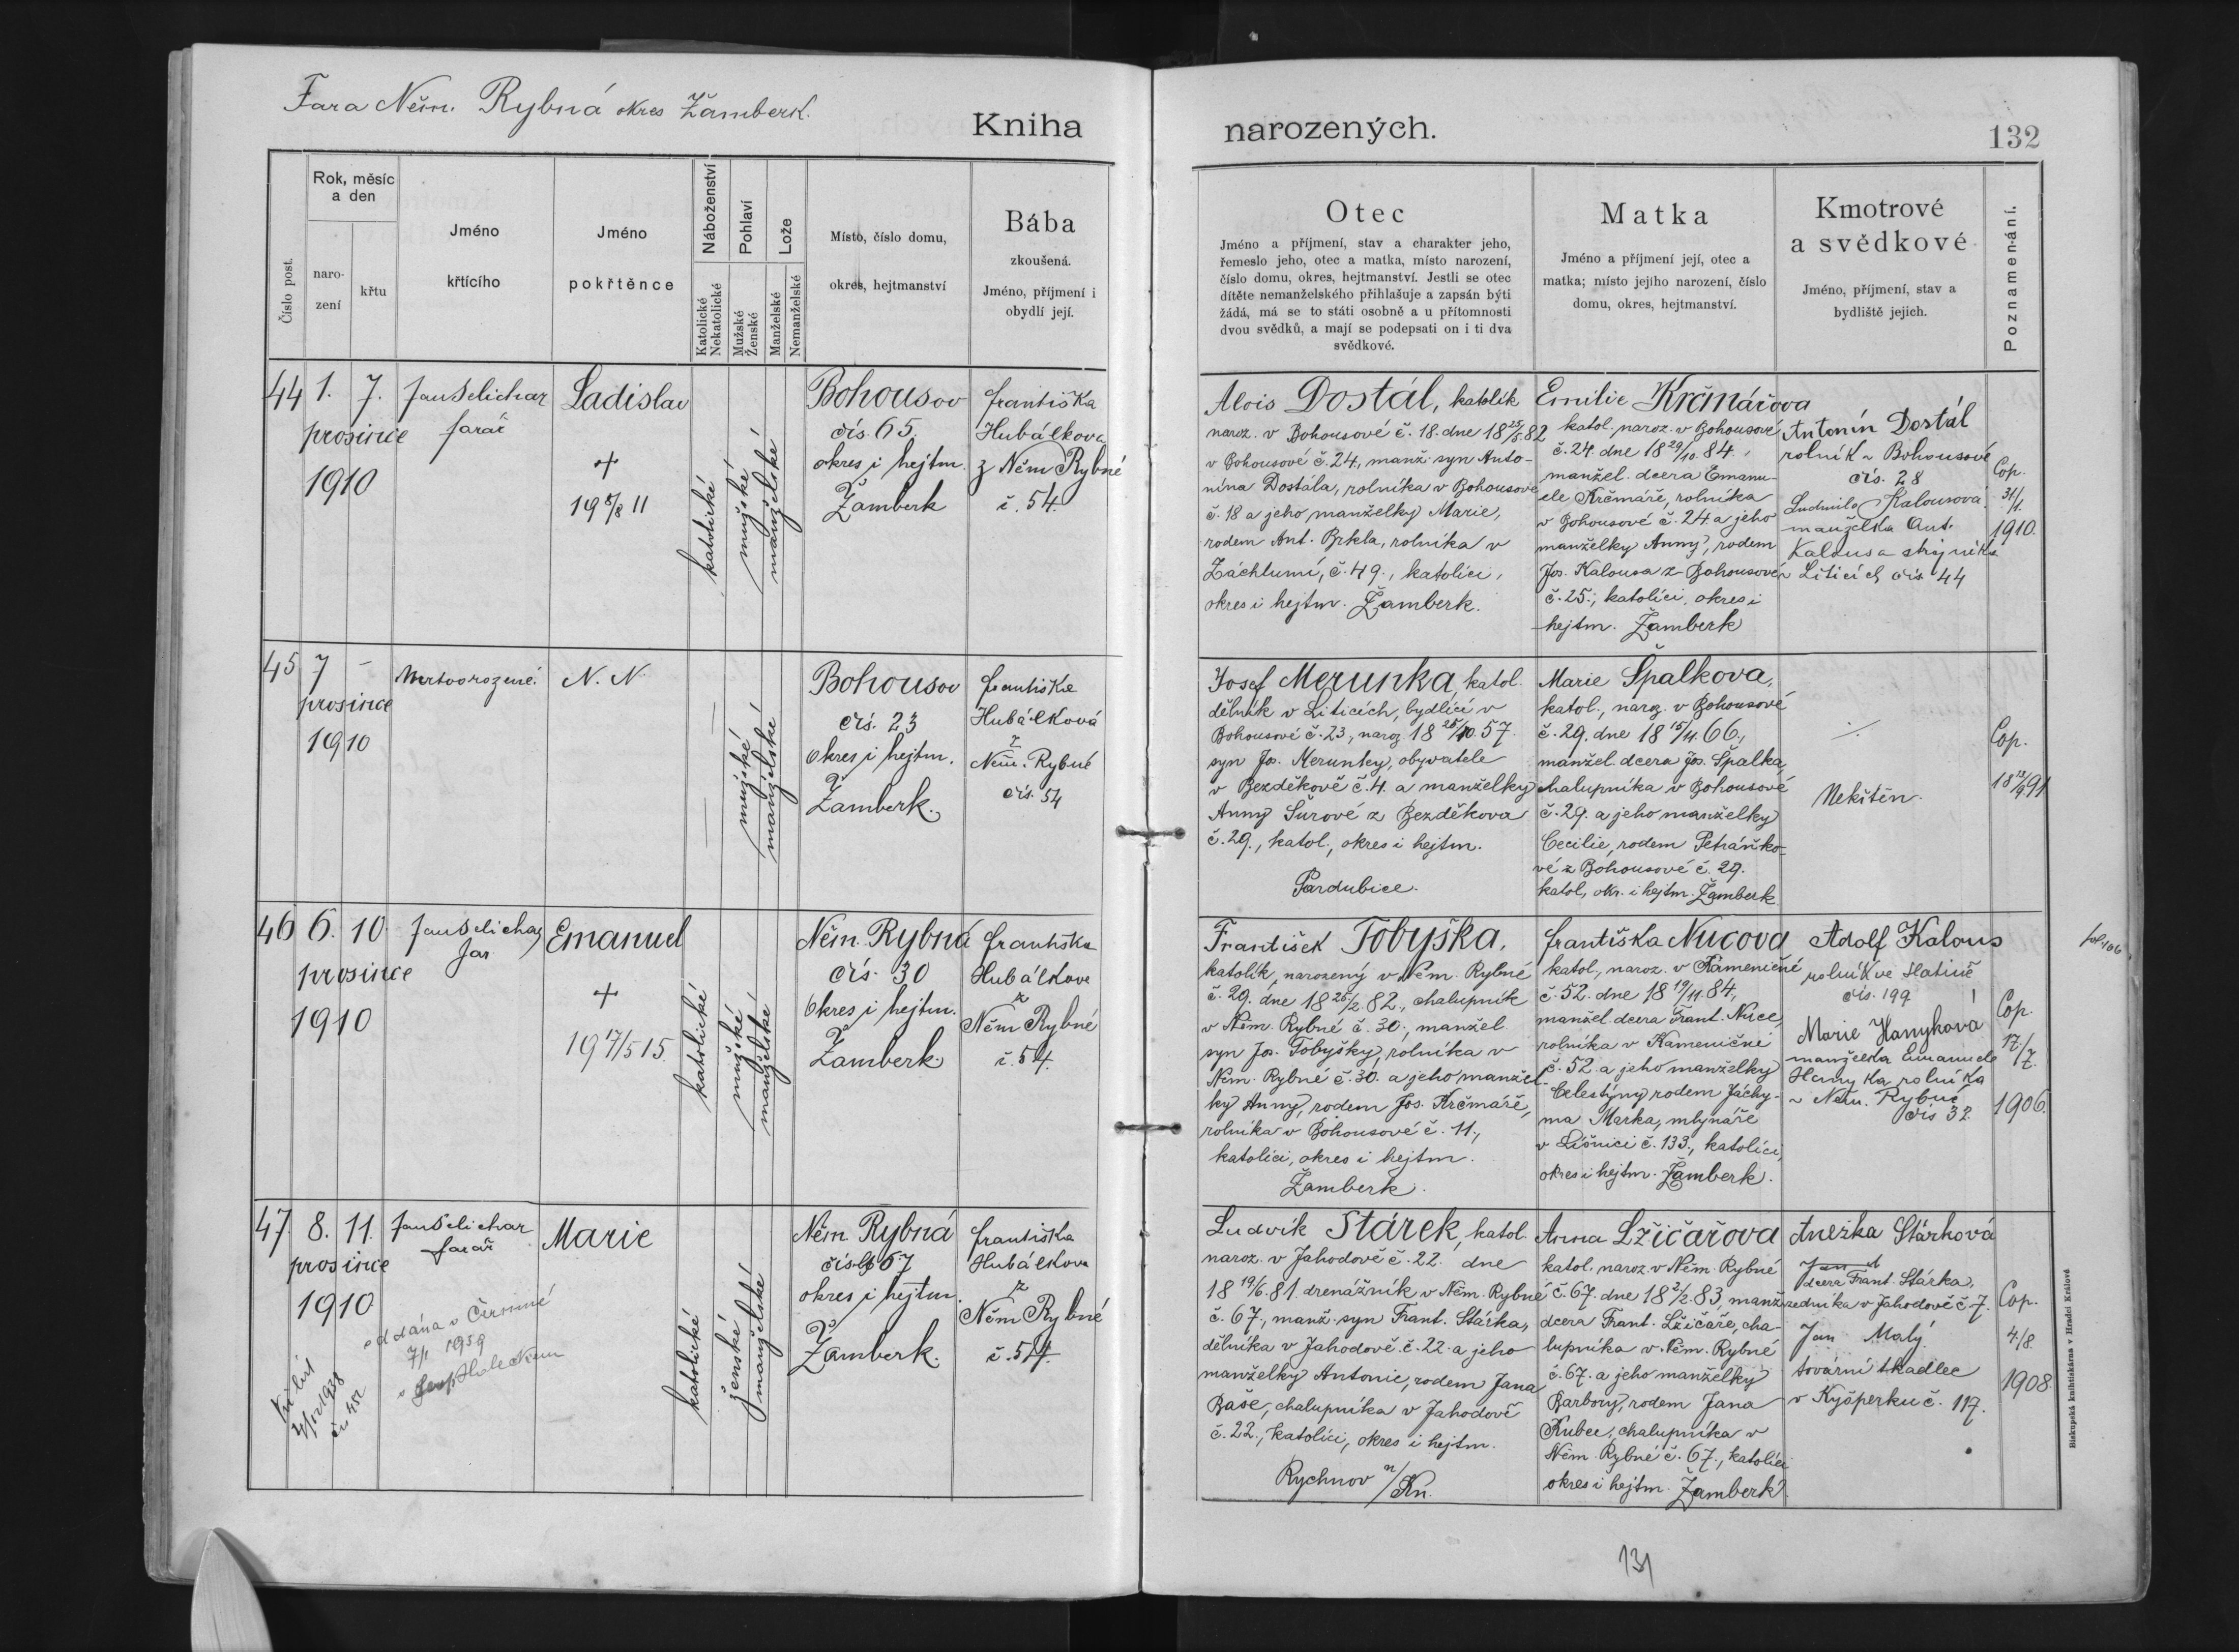 Fara Něm. Rybná okres Žamberk.
Kniha
narozených.
132
Číslo post.
Rok, měsíc
a den
naro-
zení
křtu
Jméno
křtícího
Jméno
pokřtěnce
Náboženství
Katolické
Nekatolické
Pohlaví
Mužské
Ženské
Lože
Manželské
Nemanželské
Místo, číslo domu,
okres, hejtmanství
Bába
zkoušená.
Jméno, příjmení i
obydlí její.
Otec
Jméno a příjmení, stav a charakter jeho,
řemeslo jeho, otec a matka, místo narození,
číslo domu, okres, hejtmanství. Jestli se otec
dítěte nemanželského přihlašuje a zapsán býti
žádá, má se to státi osobně a u přítomnosti
dvou svědků, a mají se podepsati on i ti dva
svědkové.
Matka
Jméno a příjmení její, otec a
matka; místo jejího narození, číslo
domu, okres, hejtmanství.
Kmotrové
a svědkové
Jméno, příjmení, stav a
bydliště jejich.
Poznamenání.
44 1. 7.
prosince
1910
Jan Selichar
farář
Ladislav
+
19 5/8 11
katolické
mužské
manželské
Bohousov
čís. 65.
okres i hejtm.
Žamberk
Františka
Hubálkova
z Něm Rybné
č. 54.
Alois Dostál, katolík
naroz. v Bohousové č. 18. dne 18 25/5 82
v Bohousové č. 24, manž. syn Anto-
nína Dostála, rolníka v Bohousové
č. 18 a jeho manželky Marie,
rodem Ant. Brkla, rolníka v
Záchlumí, č. 49., katolíci,
okres i hejtm. Žamberk.
Emilie Krčmářova
katol. naroz. v Bohousové
č. 24. dne 18 29/10. 84.,
manžel. dcera Emanu-
ele Krčmáře, rolníka
v Bohousové č. 24 a jeho
manželky Anny, rodem
Jos. Kalousa z Bohousové
č. 25., katolíci, okres i
hejtm. Žamberk
Antonín Dostál
rolník v Bohousové
čís. 28
Ludmila Kalousová
manželka Ant.
Kalousa
v Liticích čís 44
Cop.
31/1.
1910.
45 7 –
prosince
1910
Mrtvorozené.
N. N.
mužské
manželské
Bohousov
čís. 23
Okres i hejtm.
Žamberk.
Františka
Hubálková
z
Něm. Rybné
čís. 54
Josef Merunka, katol.
dělník v Liticích, bydlící v
Bohousové č. 23, naroz. 18 25/10. 57.
syn Jos. Merunky, obyvatele
v Bezděkově č. 4. a manželky
Anny Šurové z Bezděkova
č. 29., katol., okres i hejtm.
Pardubice.
Marie Špalkova,
katol., naroz. v Bohousové
č. 29. dne 18 15/11. 66.,
manžel. dcera Jos. Špalka,
chalupníka v Bohousové
č. 29. a jeho manželky
Cecilie, rodem Petráňko-
vé z Bohousové č. 29.
katol, okr. i hejtm. Žamberk
Nekřtěn.
Cop.
46 6. 10.
prosince
1910
Jan Selichar
far
Emanuel
+
19 17/5 15.
katolické
mužské
manželské
Něm. Rybná
čís. 30
Okres i hejtm.
Žamberk
Františka
Hubálkova
z
Něm Rybné
č. 54.
František Tobyška,
katolík, narozený v Něm. Rybné
č. 29. dne 18 25/2 82., chalupník
v Něm. Rybné č. 30., manžel
syn Jos. Tobyšky, rolníka v
Něm. Rybné č. 30. a jeho manžel-
ky Anny, rodem Jos. Krčmáře,
rolníka v Bohousové č. 11.,
katolíci, okres i hejtm.
Žamberk.
Františka Nucova
katol., naroz. v Kameničné
č. 52. dne 18 19/11. 84.,
manžel. dcera Frant. Nuce,
rolníka v Kameničné
č. 52. a jeho manželky
Celestýny rodem Jáchy-
ma Marka, mlynáře
v Líšnici č. 133., katolíci,
okres i hejtm. Žamberk.
Adolf Kalous
rolník ve Slatině
čís. 199
Marie Hanyková
manželka Emanuele
Hanyka rolníka
v Něm. Rybné
čís 32.
Cop.
17./7.
1906.
47. 8. 11.
prosince
1910
Jan Selichar
farář
Marie
oddána v Čermné
7/1 1959
katolické
ženské
manželské
Něm. Rybná
číslo 67
okres i hejtm.
Žamberk.
Františka
Hubálkova
z
Něm Rybné
č. 54.
Ludvík Stárek, katol.
naroz. v Jahodově č. 22. dne
18 19/6. 81. drenážník v Něm. Rybné
č. 67., manž. syn Frant. Stárka,
dělníka v Jahodově č. 22. a jeho
manželky Antonie, rodem Jana
Baše, chalupníka v Jahodově
č. 22., katolíci, okres i hejtm.
Rychnov n/Kn.
Anna Lžičařova
katol. naroz. v Něm. Rybné
č. 67. dne 18 2/2. 83, manž.
dcera Frant. Lžičaře, cha-
lupníka v Něm. Rybné
č. 67. a jeho manželky
Barbory, rodem Jana
Kubce, chalupníka v
Něm. Rybné č. 67., katolíci
okres i hejtm. Žamberk.
Anežka Stárková
dcera Frant. Stárka,
zedníka v Jahodově č. 7.
Jan Malý
tovární tkadlec
v Kyšperku č. 117.
Cop.
4./8.
1908.
Biskupská knihtiskárna v Hradci Králové
131